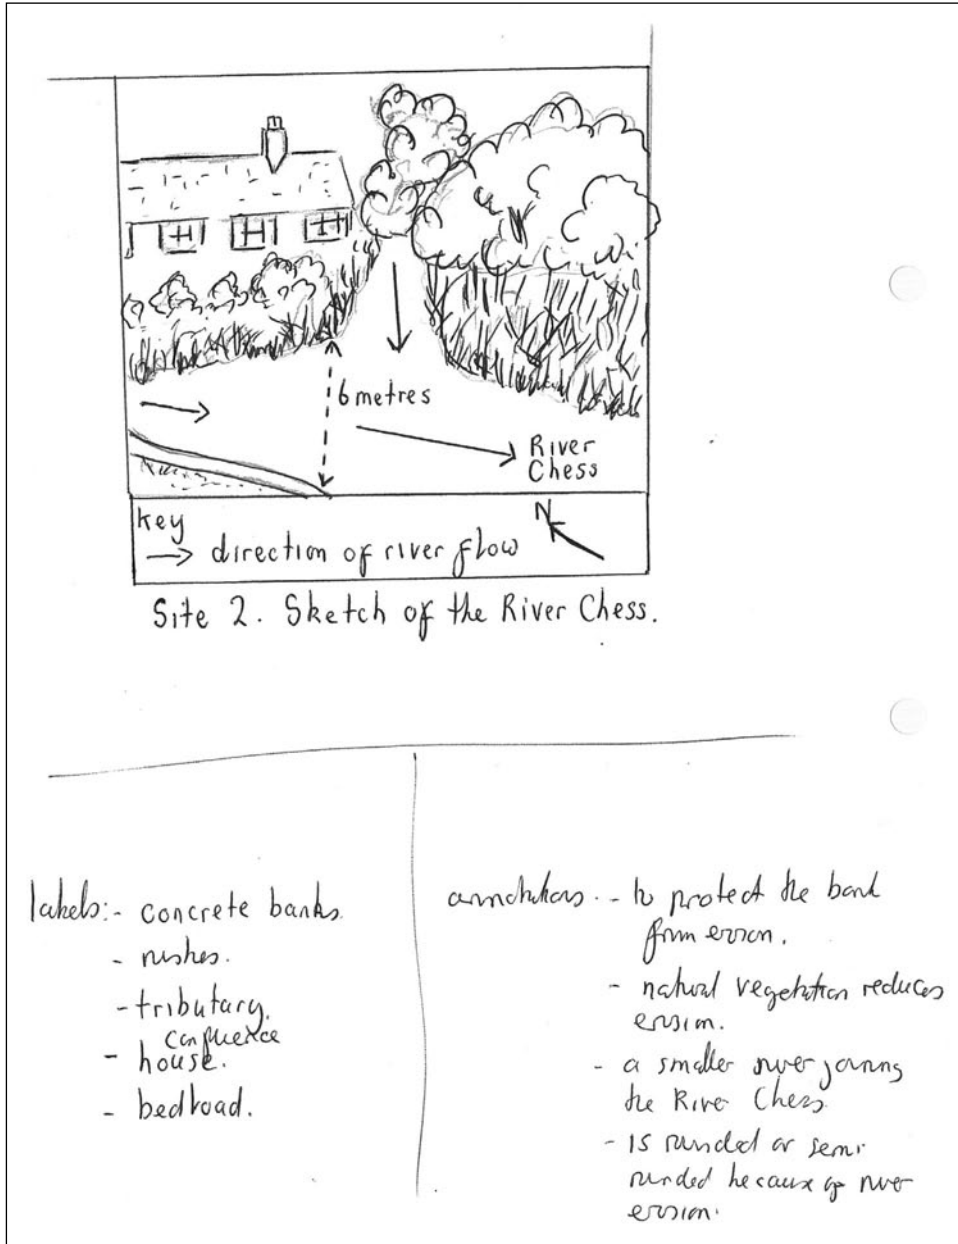 6 metres
River
Chess
N
key
→ direction of river flow
Site 2. Sketch of the River Chess.
labels:- concrete banks.
- rushes.
- tributary.
confluence
- house.
- bedload.
annotations. - to protect the bank
from erosion.
- natural vegetation reduces
erosion.
- a smaller river joining
the River Chess
- is rounded or semi
rounded because of river
erosion.